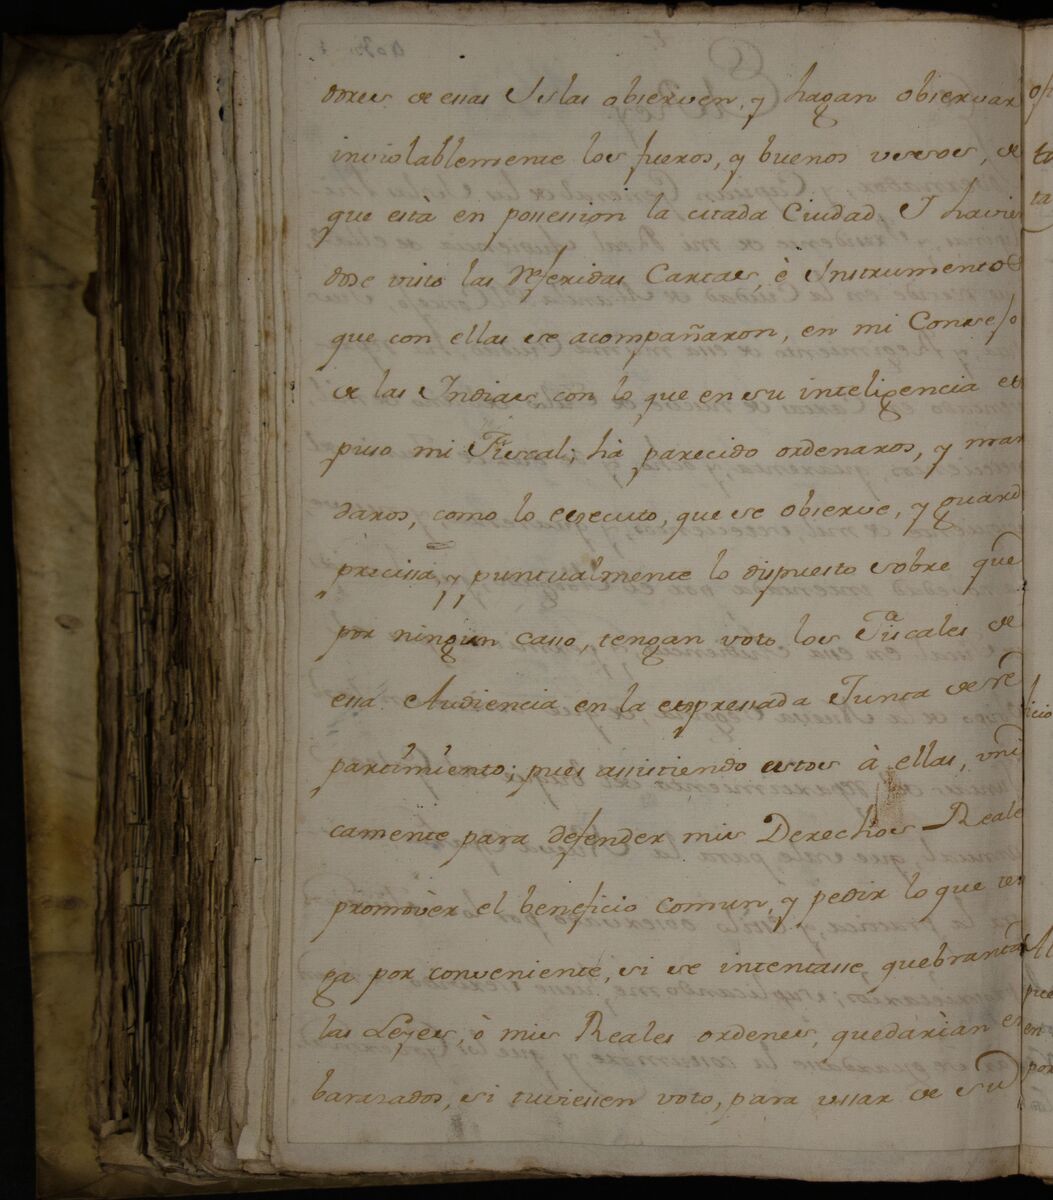 dores de essas Islas observen, y hagan observar
inviolablemente los fueros, y buenos ussos, de
que está en possession la citada Ciudad. I havien
dose visto las referidas Cartas, è Instrumentos
que con ellas se acompañaron, en mi Consejo
de las Indias, con lo que en su inteligencia ex
puso mi Fiscal; há parecido ordenaros, y man
daros, como lo executo, que se observe, y guard
precissa, y puntualmente lo dispuesto sobre que
por ningun casso, tengan voto los Fiscales de
essa Audiencia en la expressada Junta de re
partimiento; pues assistiendo estos à ellas, vni
camente para defender mis Derechos Reale
promovèr el beneficio comun, y pedir lo que ten
ga por conveniente, si se intentasse quebrantar
las Leyes, ò mis Reales ordenes, quedarian em
barazados, si tuviessen voto, para vssar de su